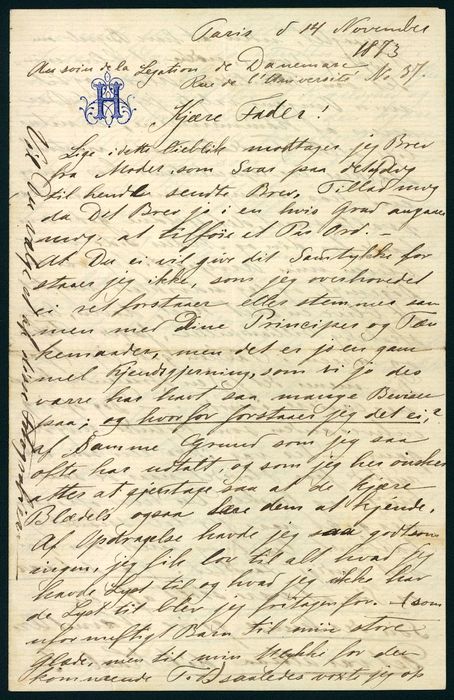 Paris d 14 November
1873
Au soin de la Legation de Danemare
Rue de l'Université No 37.
H
Kjære Fader!
Lige i dette Øieblik modtager jeg Brev
fra Moder, som Svar paa det af mig
til hende sendte Brev, Tillad mig
da Det Brev jo i en hvis Grad angaaer
mig, at tilføie et Par Ord. –
At Du ei vil give dit Samtykke for
staaer jeg ikke, som jeg overhovedet
ei ret forstaaer eller stemmer sam
men med Dine Principer og Tæn
kemaader, men det er jo en gam
mel Kjendsgjerning, som vi jo des
varre har havt saa mange Beviser
paa; og hvorfor forstaaer jeg det ei,?
af Samme Grund som jeg saa
ofte har udtalt, og som jeg her ønsker
atter at gjentage saa at de kjære
Blædels ogsaa lære dem at kjende.
Af Opdragelse havde jeg saa godt som
ingen, jeg fik lov til alt hvad jeg
havde Lyst til og hvad jeg ikke hav
de Lyst til blev jeg fritagen for. – som
ufornuftigt Barn til min store
Glæde, men til min for den
kommende T. D saaledes voxte jeg op
Vil Du